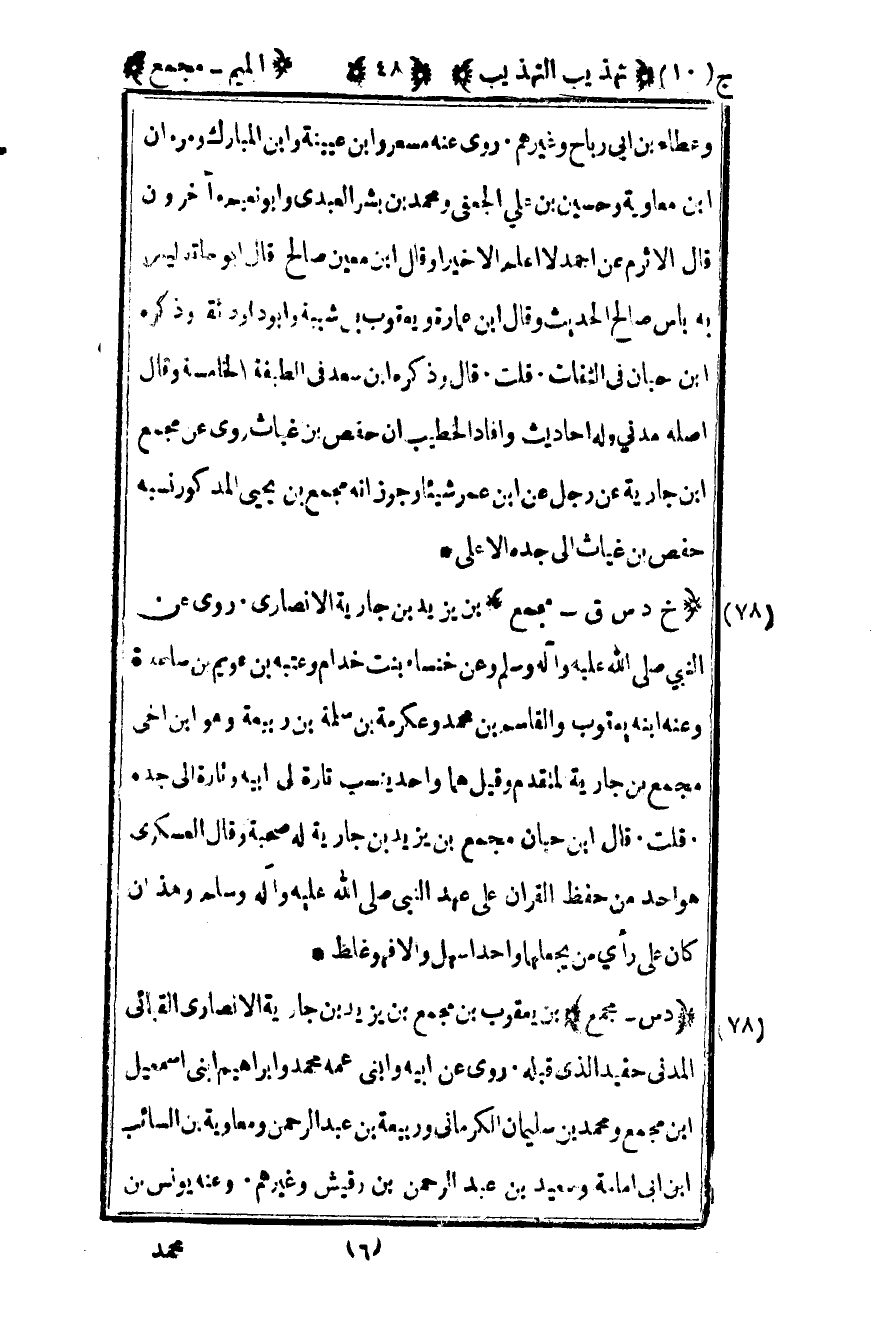 ج (١٠) ﴿ تهذيب التهذيب ﴾ ﴿ ٤٨ ﴾ ﴿ الميم ـ مجمع ﴾
وعطاء بن ابى رباح وغيرهم · روى عنه مسعر وابن عيينة وابن المبارك ومروان
ابن معاوية وحسين بن علي الجعفى ومحمد بن بشر العبدى وابونعيم وآخرون
قال الاثرم عن احمد لا اعلم الا خيرا وقال ابن معين صالح قال ابو حاتم ليس
به باس صالح الحديث وقال ابن عمارة ويعقوب بن شيبة وابوداود ثقة وذكره
ابن حبان فى الثقات · قلت · قال وذكره ابن سعد فى الطبقة الخامسة وقال
اصله مدني وله احاديث وافاد الخطيب ان حفص بن غياث روى عن مجمع
ابن جارية عن رجل عن ابن عمر شيئا وجوز انه مجمع بن يحيى المذكور نسبه
حفص بن غياث الى جده الاعلى *
﴿ خ د س ق ـ مجمع ﴾ بن يزيد بن جارية الانصارى · روى عن (٧٨)
النبي صلى الله عليه وآله وسلم وعن خنساء بنت خدام وعتبه بن عويم بن ساعدة
وعنه ابنه يعقوب والقاسم بن محمد وعكرمة بن سلمة بن ربيعة وهو ابن اخى
مجمع بن جارية المتقدم وقيل هما واحد ينسب تارة لى ابيه وتارة الى جده
· قلت · قال ابن حبان مجمع بن يزيد بن جارية له صحبة وقال العسكرى
هو احد من حفظ القران على عهد النبى صلى الله عليه وآله وسلم وهذا ان
كان على رأي من يجعلهما واحدا سهل والا فهو غلط *
﴿ د س ـ مجمع ﴾ بن يعقوب بن مجمع بن يزيد بن جارية الانصارى القبائى (٧٨)
المدنى حفيد الذى قبله · روى عن ابيه وابنى عمه محمد وابراهيم ابنى اسمعيل
ابن مجمع ومحمد بن سليمان الكرمانى وربيعة بن عبد الرحمن ومعاوية بن السائب
ابن ابى امامة وسعيد بن عبد الرحمن بن رقيش وغيرهم · وعنه يونس بن
(٦) محمد